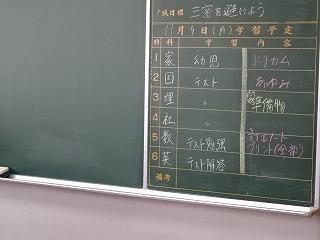 学級目標 三密を避けよう
11月9日(月)学習予定
時 科 学習 内容
1 家 幼児 ドリカム
2 国 テスト あゆみ
3 理 〃 準備物
4 社 〃
5 数 テスト勉強 訂正ノート
プリント(全楽)
6 英 テスト解答
備考